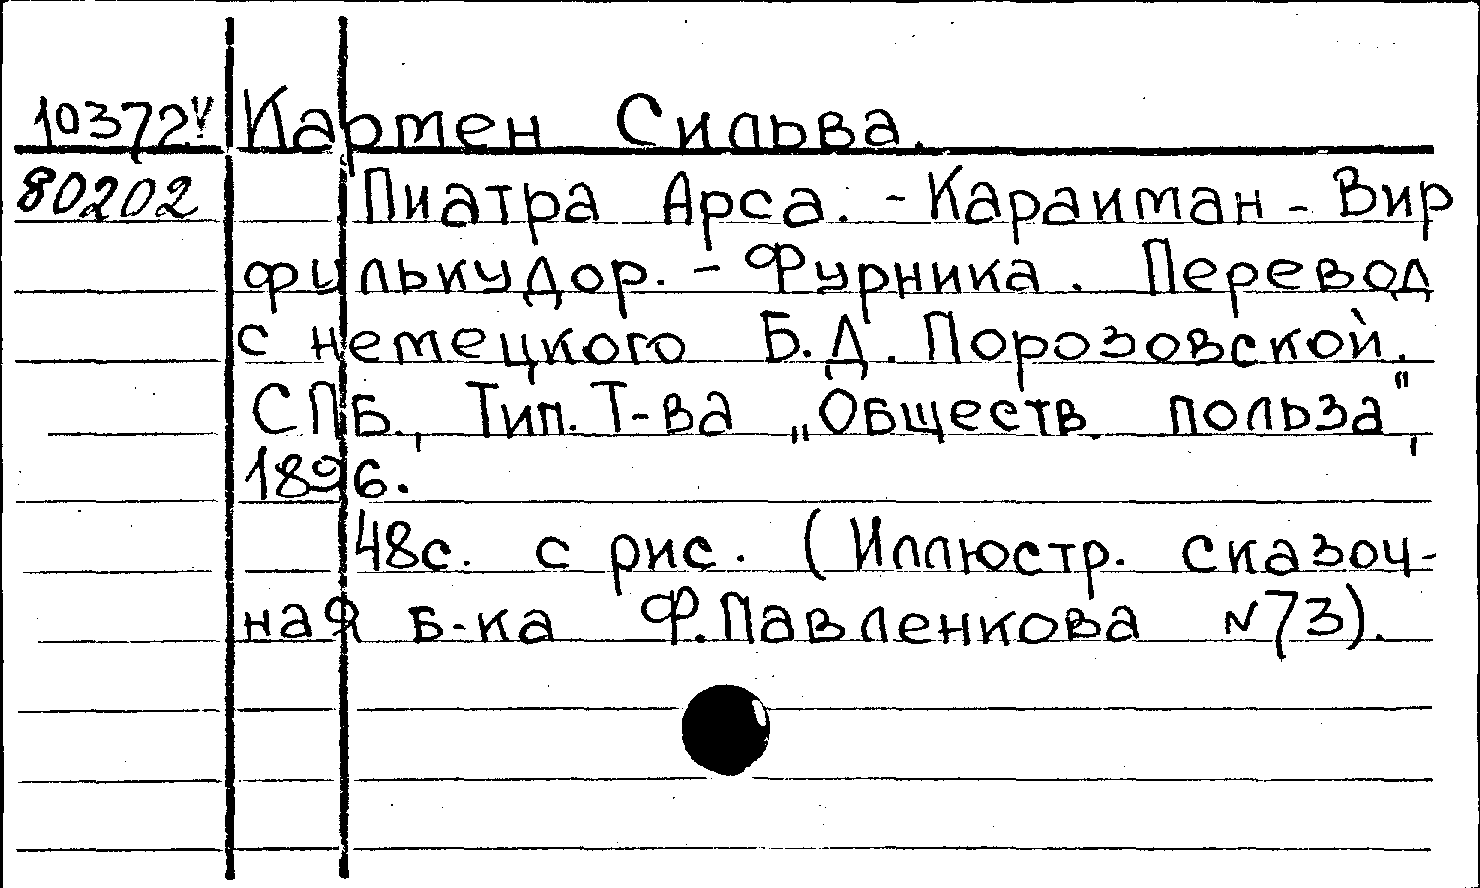 10372V Кармен Сильва.
80202 Пиатра Арса. - Караиман - Вир
филькудор. - Фурника. Перевод
с немецкого Б.Д. Порозовской.
СПБ., Тип. Т-ва „Обществ. польза",
1896.
48с. с рис. (Иллюстр. сказоч-
ная б-ка Ф.Павленкова N73).